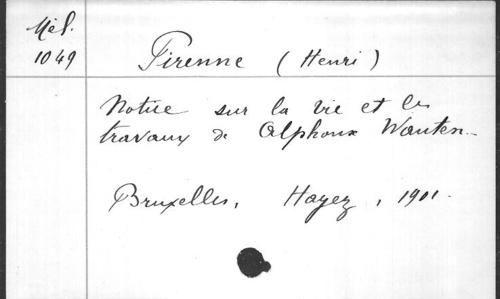 Mél.
1049
Pirenne (Henri)
Notice sur la vie et les
travaux de Alphonse Wauters
Bruxelles, Hayez, 1901.